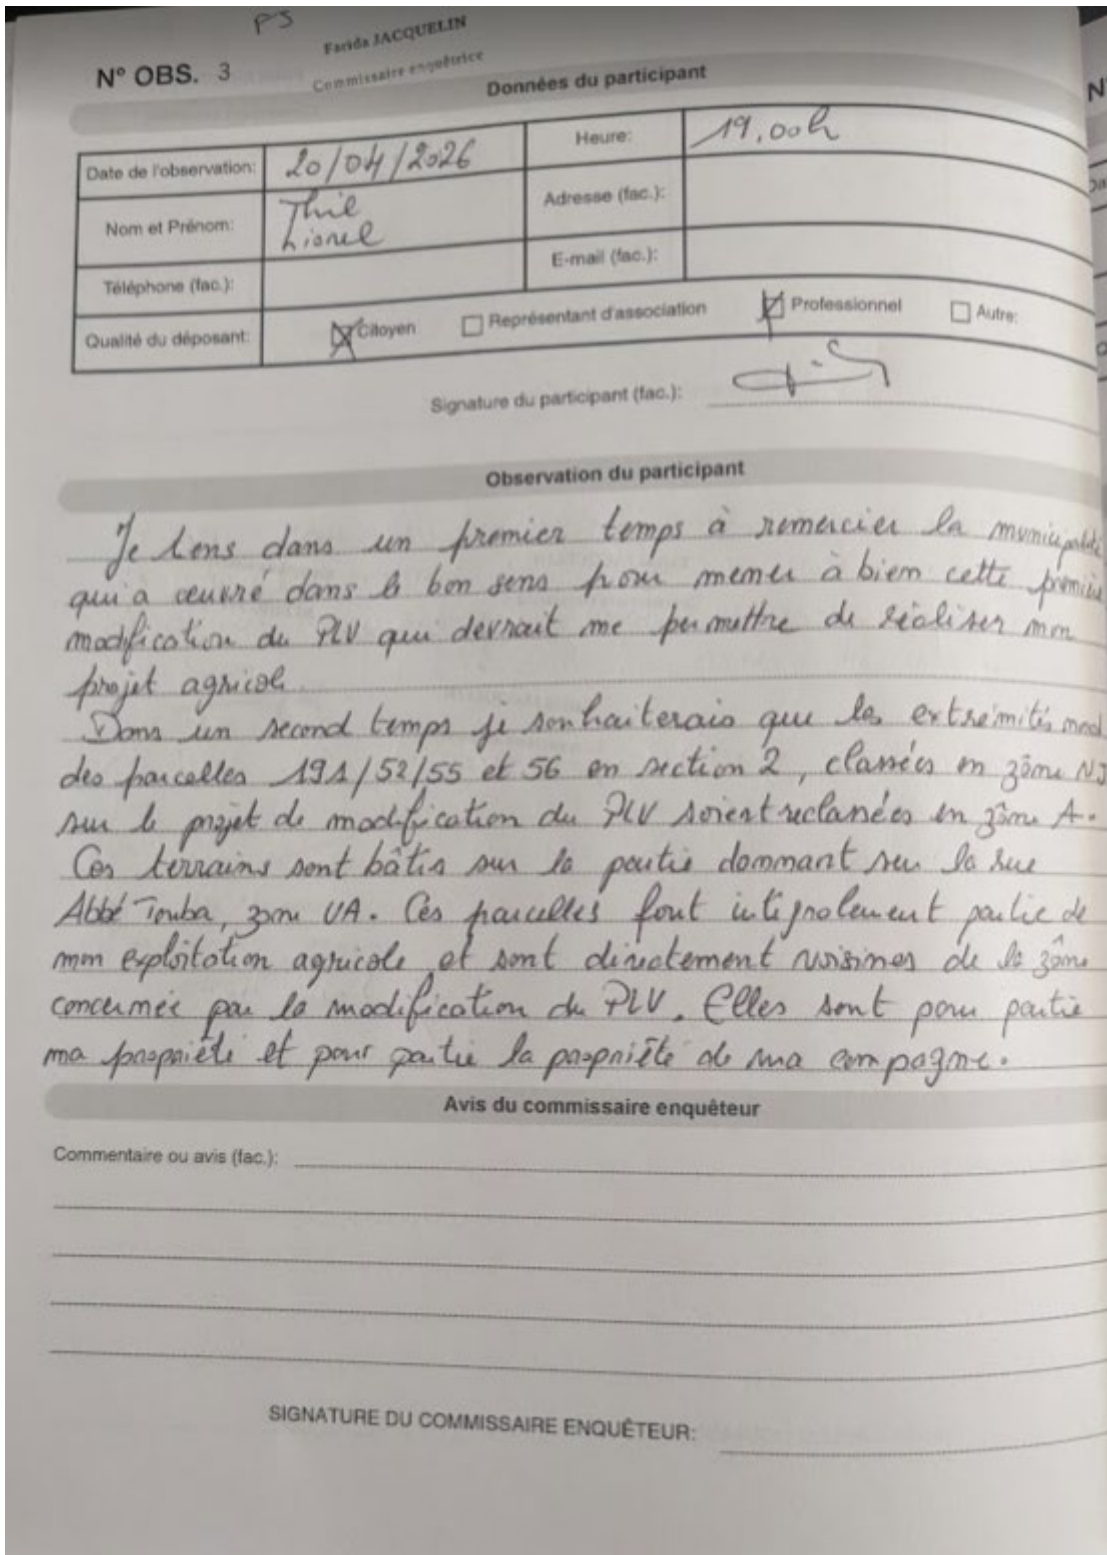 PS
Farida JACQUELIN
Commissaire enquêtrice
N° OBS. 3
Données du participant
Date de l'observation: 20/04/2026 Heure: 19.00h
Nom et Prénom: Thil Lionel Adresse (fac.):
Téléphone (fac.): E-mail (fac.):
Qualité du déposant: Citoyen Représentant d'association Professionnel Autre:
Signature du participant (fac.):
Observation du participant
Je tens dans un premier temps à remercier la municipalité
qui a œuvré dans le bon sens pour mener à bien cette première
modification du PLU qui devrait me permettre de réaliser mon
projet agricole
Dans un second temps je souhaiterais que les extrémités nord
des parcelles 191/52/55 et 56 en section 2, classées en zône NJ
sur le projet de modification du PLU soient reclassées en zône A.
Ces terrains sont bâtis sur la partie dommant sur la rue
Abbé Touba, zone UA. Ces parcelles font intégralement partie de
mon exploitation agricole et sont directement voisines de la zône
concernée par la modification du PLU. Elles sont pour partie
ma propriété et pour partie la propriété de ma compagne.
Avis du commissaire enquêteur
Commentaire ou avis (fac.):
SIGNATURE DU COMMISSAIRE ENQUÊTEUR: